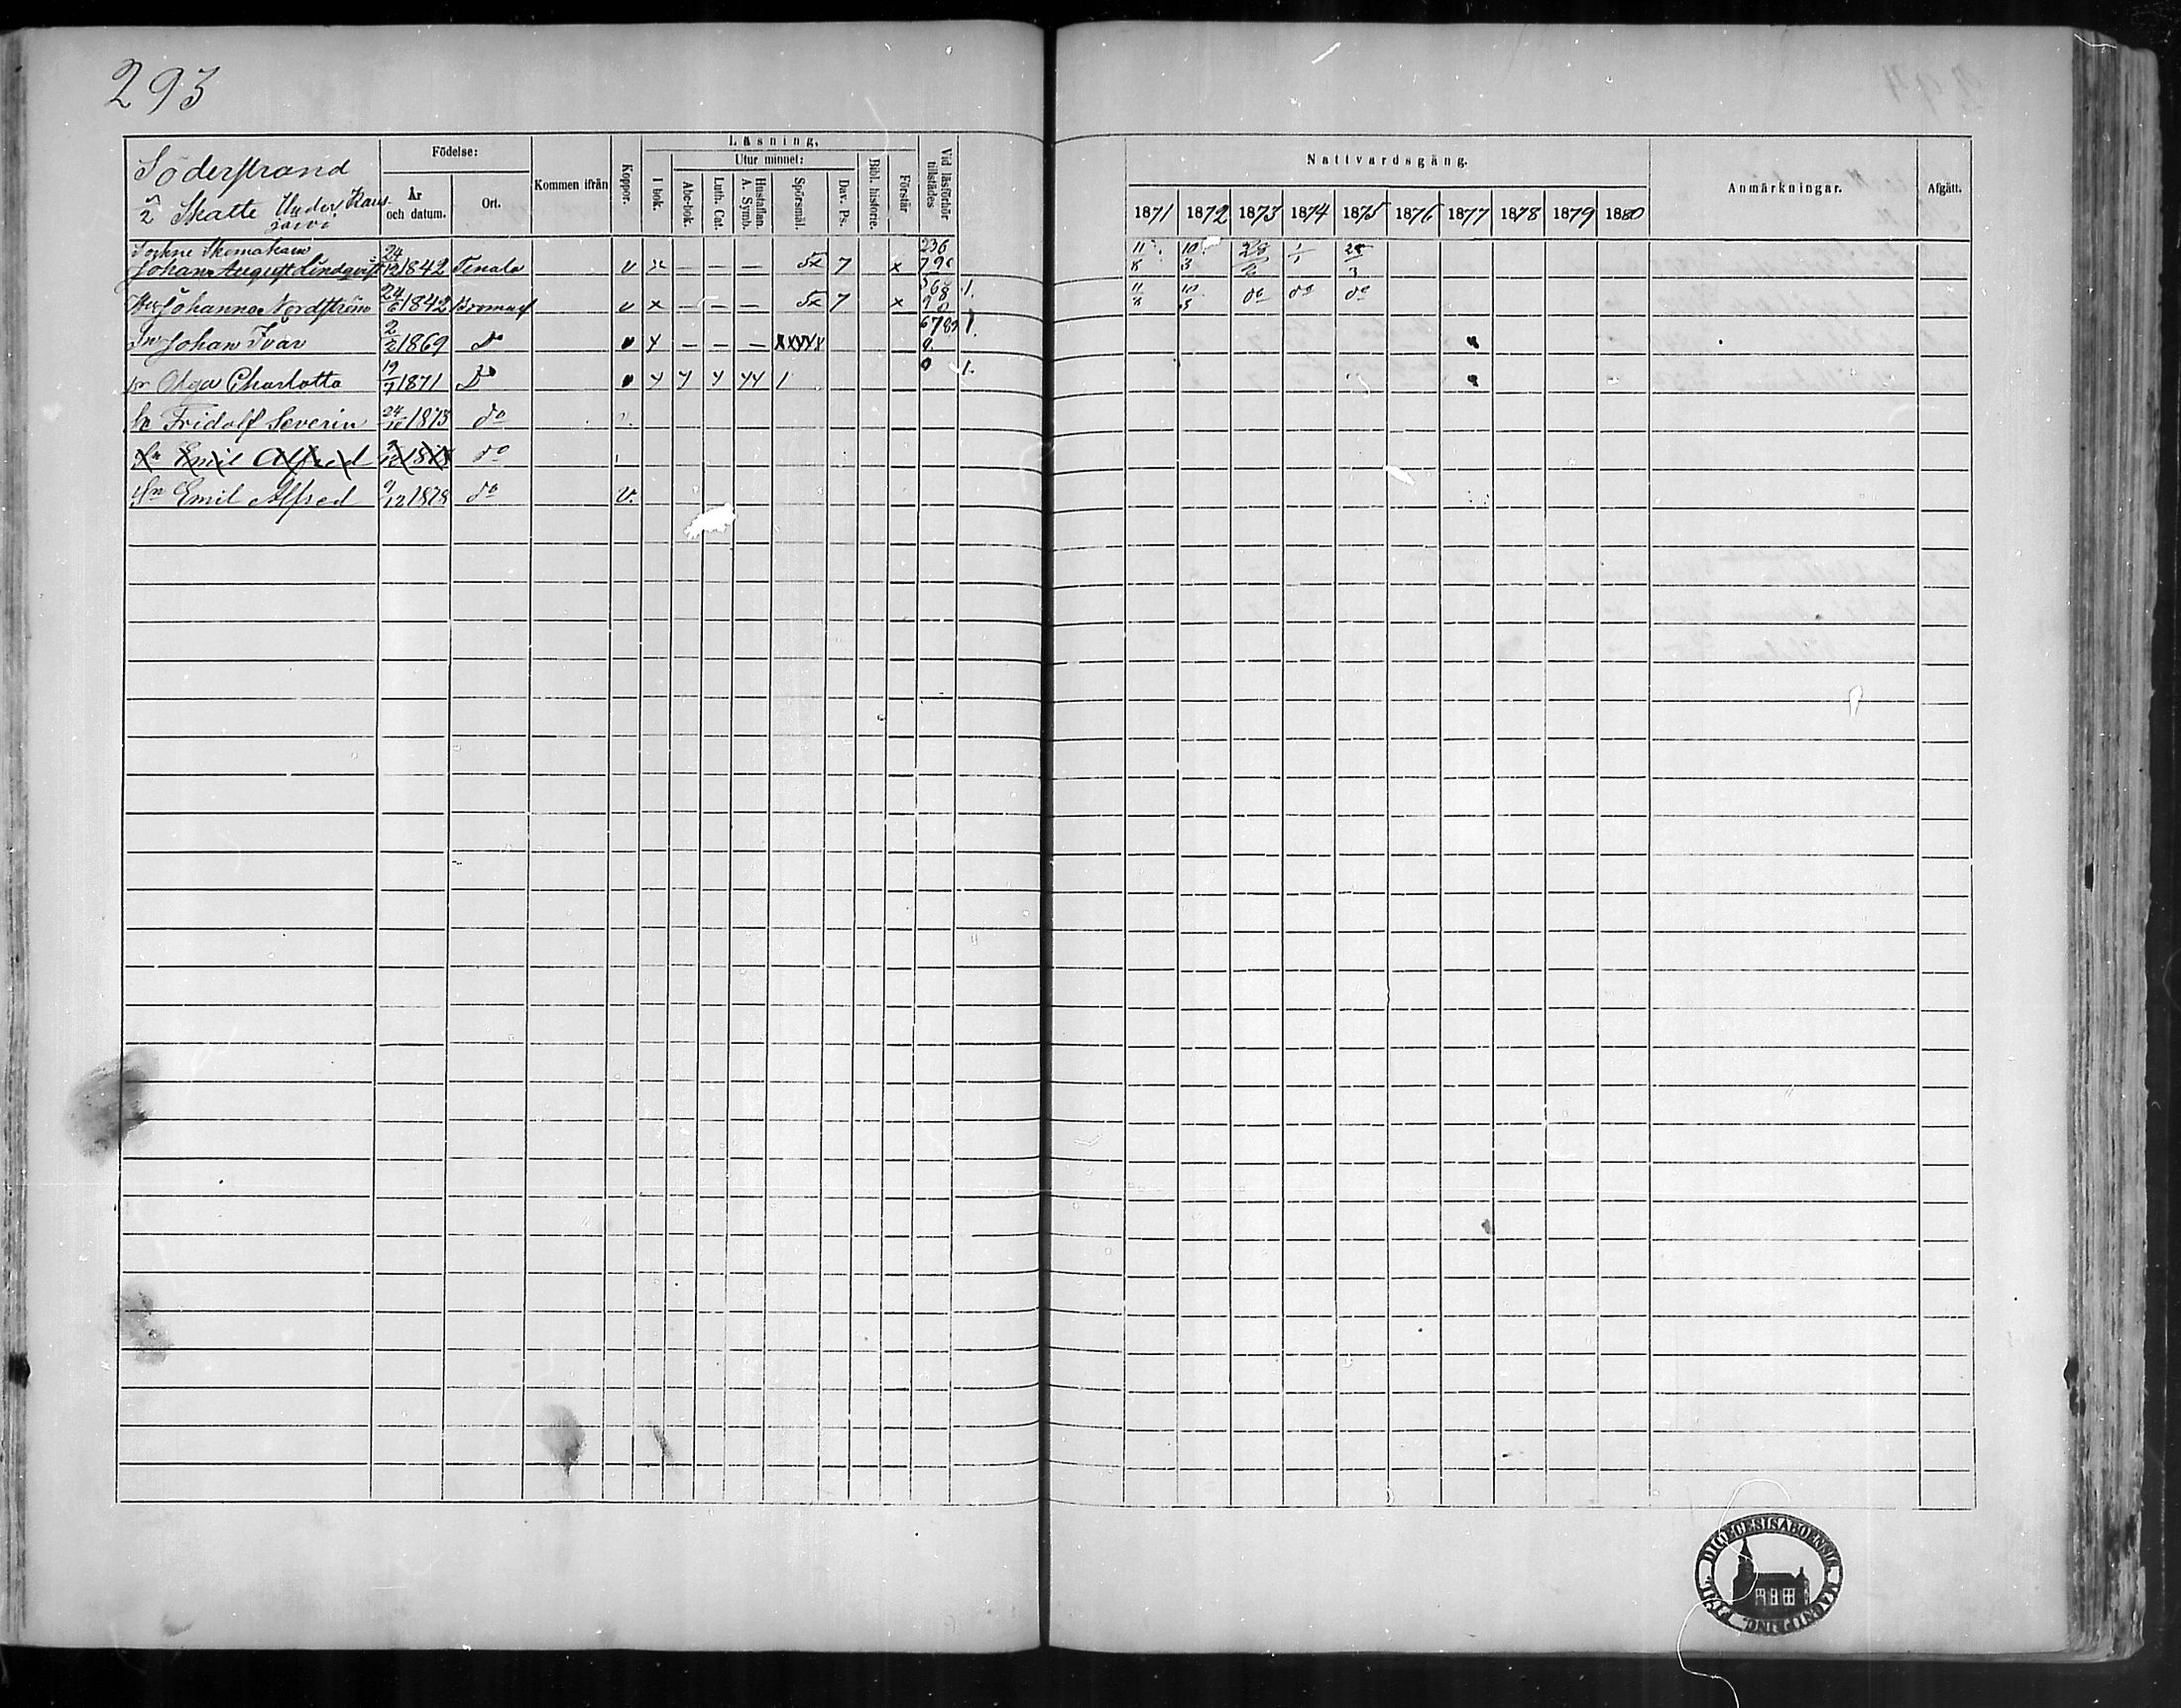 293
Söderstrand
1/2 Skatte Under Kans
järvi
Födelse:
År och datum.
Ort.
Kommen ifrån
Koppor.
Läsning,
I bok.
Utur minnet:
Abc-bok.
Luth. Cat.
Hustaflan. A. Symb.
Spörsmål.
Dav. Ps.
Bibl. historie.
Förstår
Vid läsförhör tillstädes
Nattvardsgång.
1871 1872 1873 1874 1875 1876 1877 1878 1879 1880
Anmärkningar.
Afgått.
Sockne Skomakare 24 236 11 10 28 1 28
Johan August Lindqvist 12 1842 Tenala v x — — — 5x 7 x 790 8 3 2 1 3
Hu Johanna Nordström 24/6 1842 Bromarf v x — — — 5x 7 x 568 90 1. 11/8 10/3 do do do
Sn Johan Ivar 2/2 1869 Do v x — — — xxxxx 6789 1.
Dr Olga Charlotta 19/7 1871 Do v y y y yy 1 0 1.
Sn Fridolf Severin 24/10 1873 do v.
Sn Emil Alfred 1878 do
Sn Emil Alfred 9/12 1878 do v.
SIGIL. DIOECESIS ABOENSIS MAGNI PRINC.